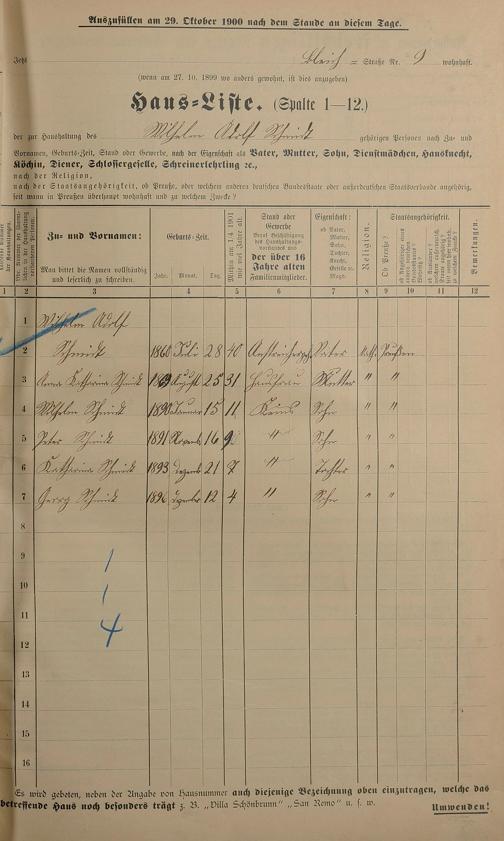 Auszufüllen am 29. Oktober 1900 nach dem Stande an diesem Tage.
Jetzt Bleich = Straße Nr. 9 wohnhaft.
(wenn am 27. 10. 1899 wo anders gewohnt, ist dies anzugeben)
Haus-Liste. (Spalte 1—12.)
der zur Haushaltung des Wilhelm Adolf Schmidt gehörigen Personen nach Zu- und
Vornamen, Geburts-Zeit, Stand oder Gewerbe, nach der Eigenschaft als Vater, Mutter, Sohn, Dienstmädchen, Hausknecht,
Köchin, Diener, Schlossergeselle, Schreinerlehrling ꝛc.,
nach der Religion,
nach der Staatsangehörigkeit, ob Preuße, oder welchem anderen deutschen Bundesstaate oder außerdeutschen Staatsverbande angehörig,
seit wann in Preußen überhaupt wohnhaft und zu welchem Zwecke?
Zu- und Vornamen:
Man bittet die Namen vollständig
und leserlich zu schreiben.
Geburts-Zeit.
Jahr. Monat. Tag.
Mithin am 1/4 1901
wie viel Jahre alt.
Stand oder
Gewerbe
der über 16
Jahre alten
Familienmitglieder.
Eigenschaft:
ob Vater,
Mutter,
Sohn,
Tochter,
Knecht,
Geselle u.
Magd.
Religion.
Staatsangehörigkeit.
Ob Preuße?
Bemerkungen.
1 2 3 4 5 6 7 8 9 10 11 12
1 Wilhelm Adolf
2 Schmidt 1860 Juli 28 40 Vater kath. Preußen
3 Anna Katharina Schmidt August 25 31 Hausfrau Mutter " "
4 Wilhelm Schmidt 1890 Januar 15 11 Keins Sohn " "
5 Peter Schmidt 1891 Novemb. 16 9 " Sohn " "
6 Katharina Schmidt 1893 Dezemb. 21 7 " Tochter " "
7 Georg Schmidt 1896 Dezember 12 4 " Sohn " "
8
9
1
10
1
11
4
12
13
14
15
16
Es wird gebeten, neben der Angabe von Hausnummer auch diejenige Bezeichnung oben einzutragen, welche das
betreffende Haus noch besonders trägt z. B. „Villa Schönbrunn" „San Remo" u. s. w.
Umwenden!